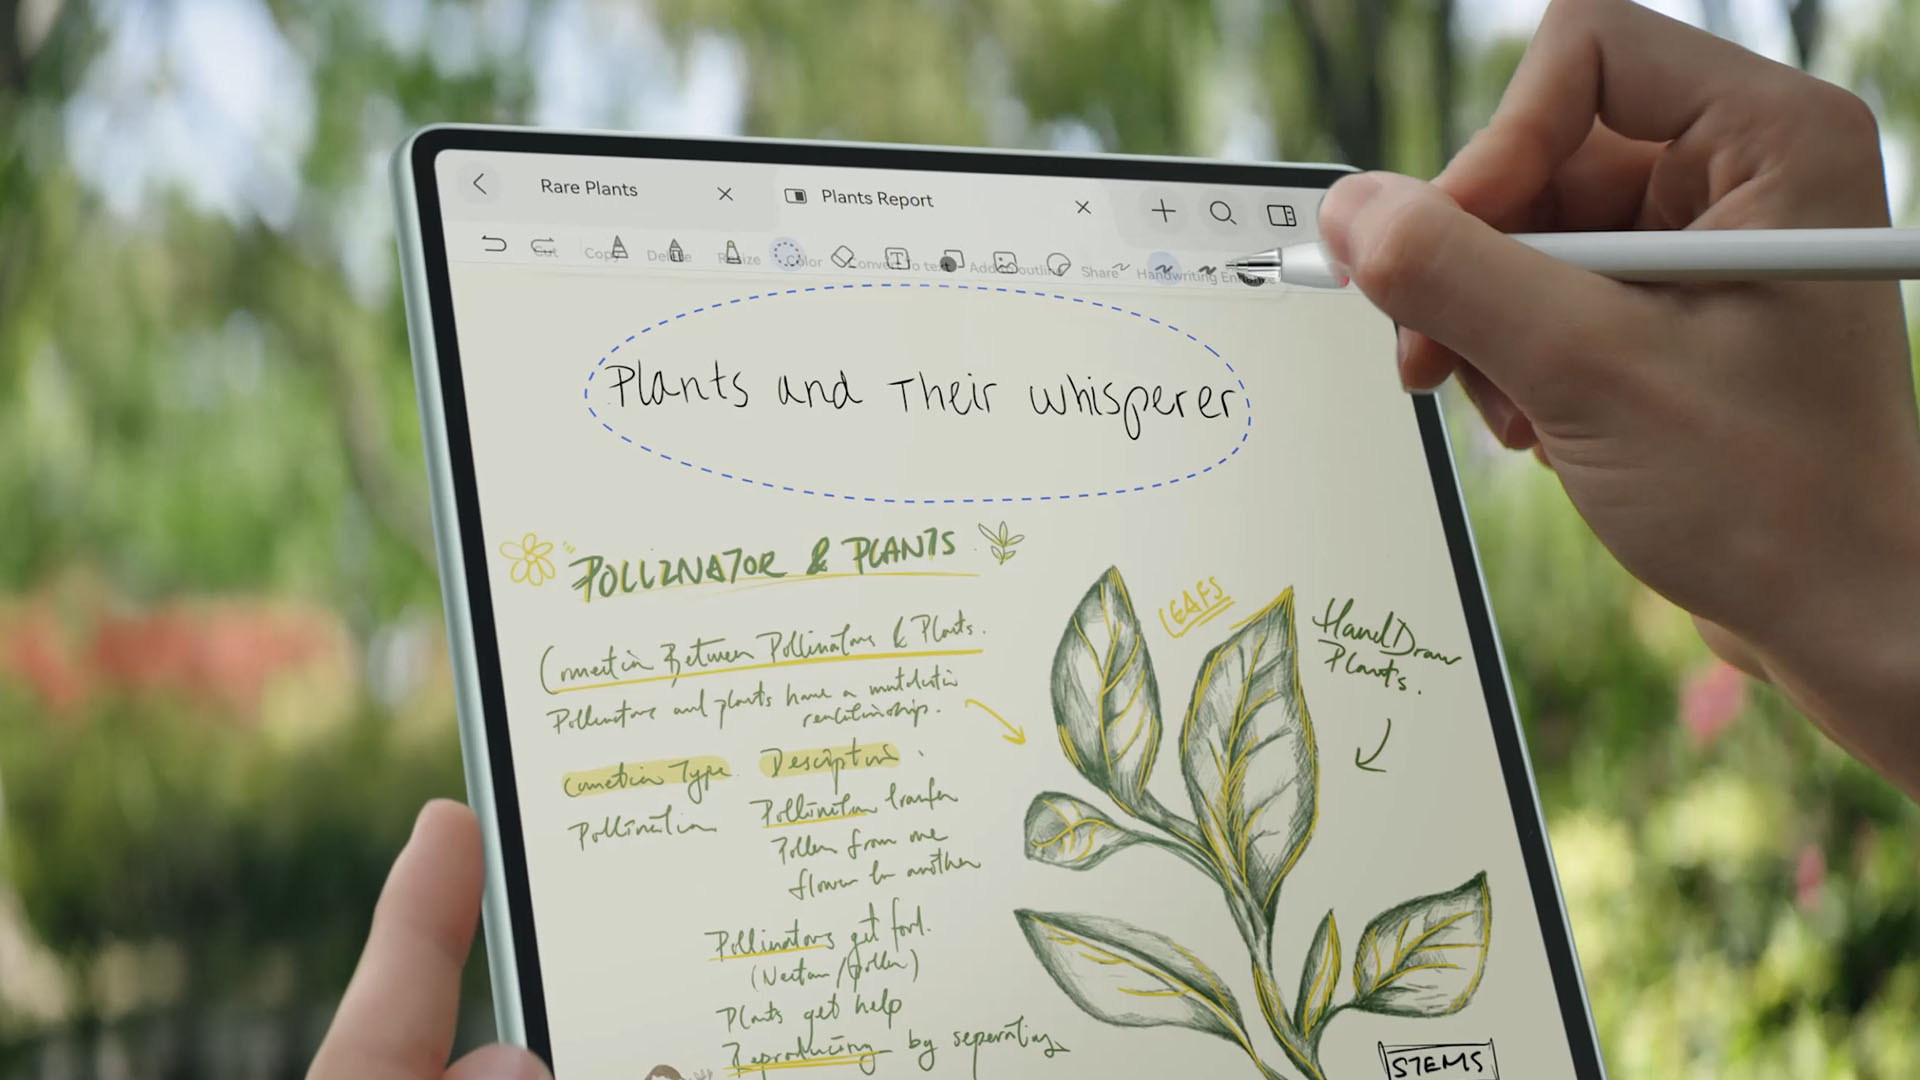 Rare Plants
Plants Report
Cut Copy Delete Resize Color Convert To text Add outline Share Handwriting
Plants and Their whisperer
POLLINATOR & PLANTS
Connection Between Pollinators & Plants.
Pollinators and plants have a
relationship.
Connection Type Description
Pollination
Pollination transfer
Pollen from one
flower to another
Pollinators get food.
(Nectar/pollen)
Plants get help
Reproducing by seperating
LEAFS
Hand Draw
Plants.
STEMS